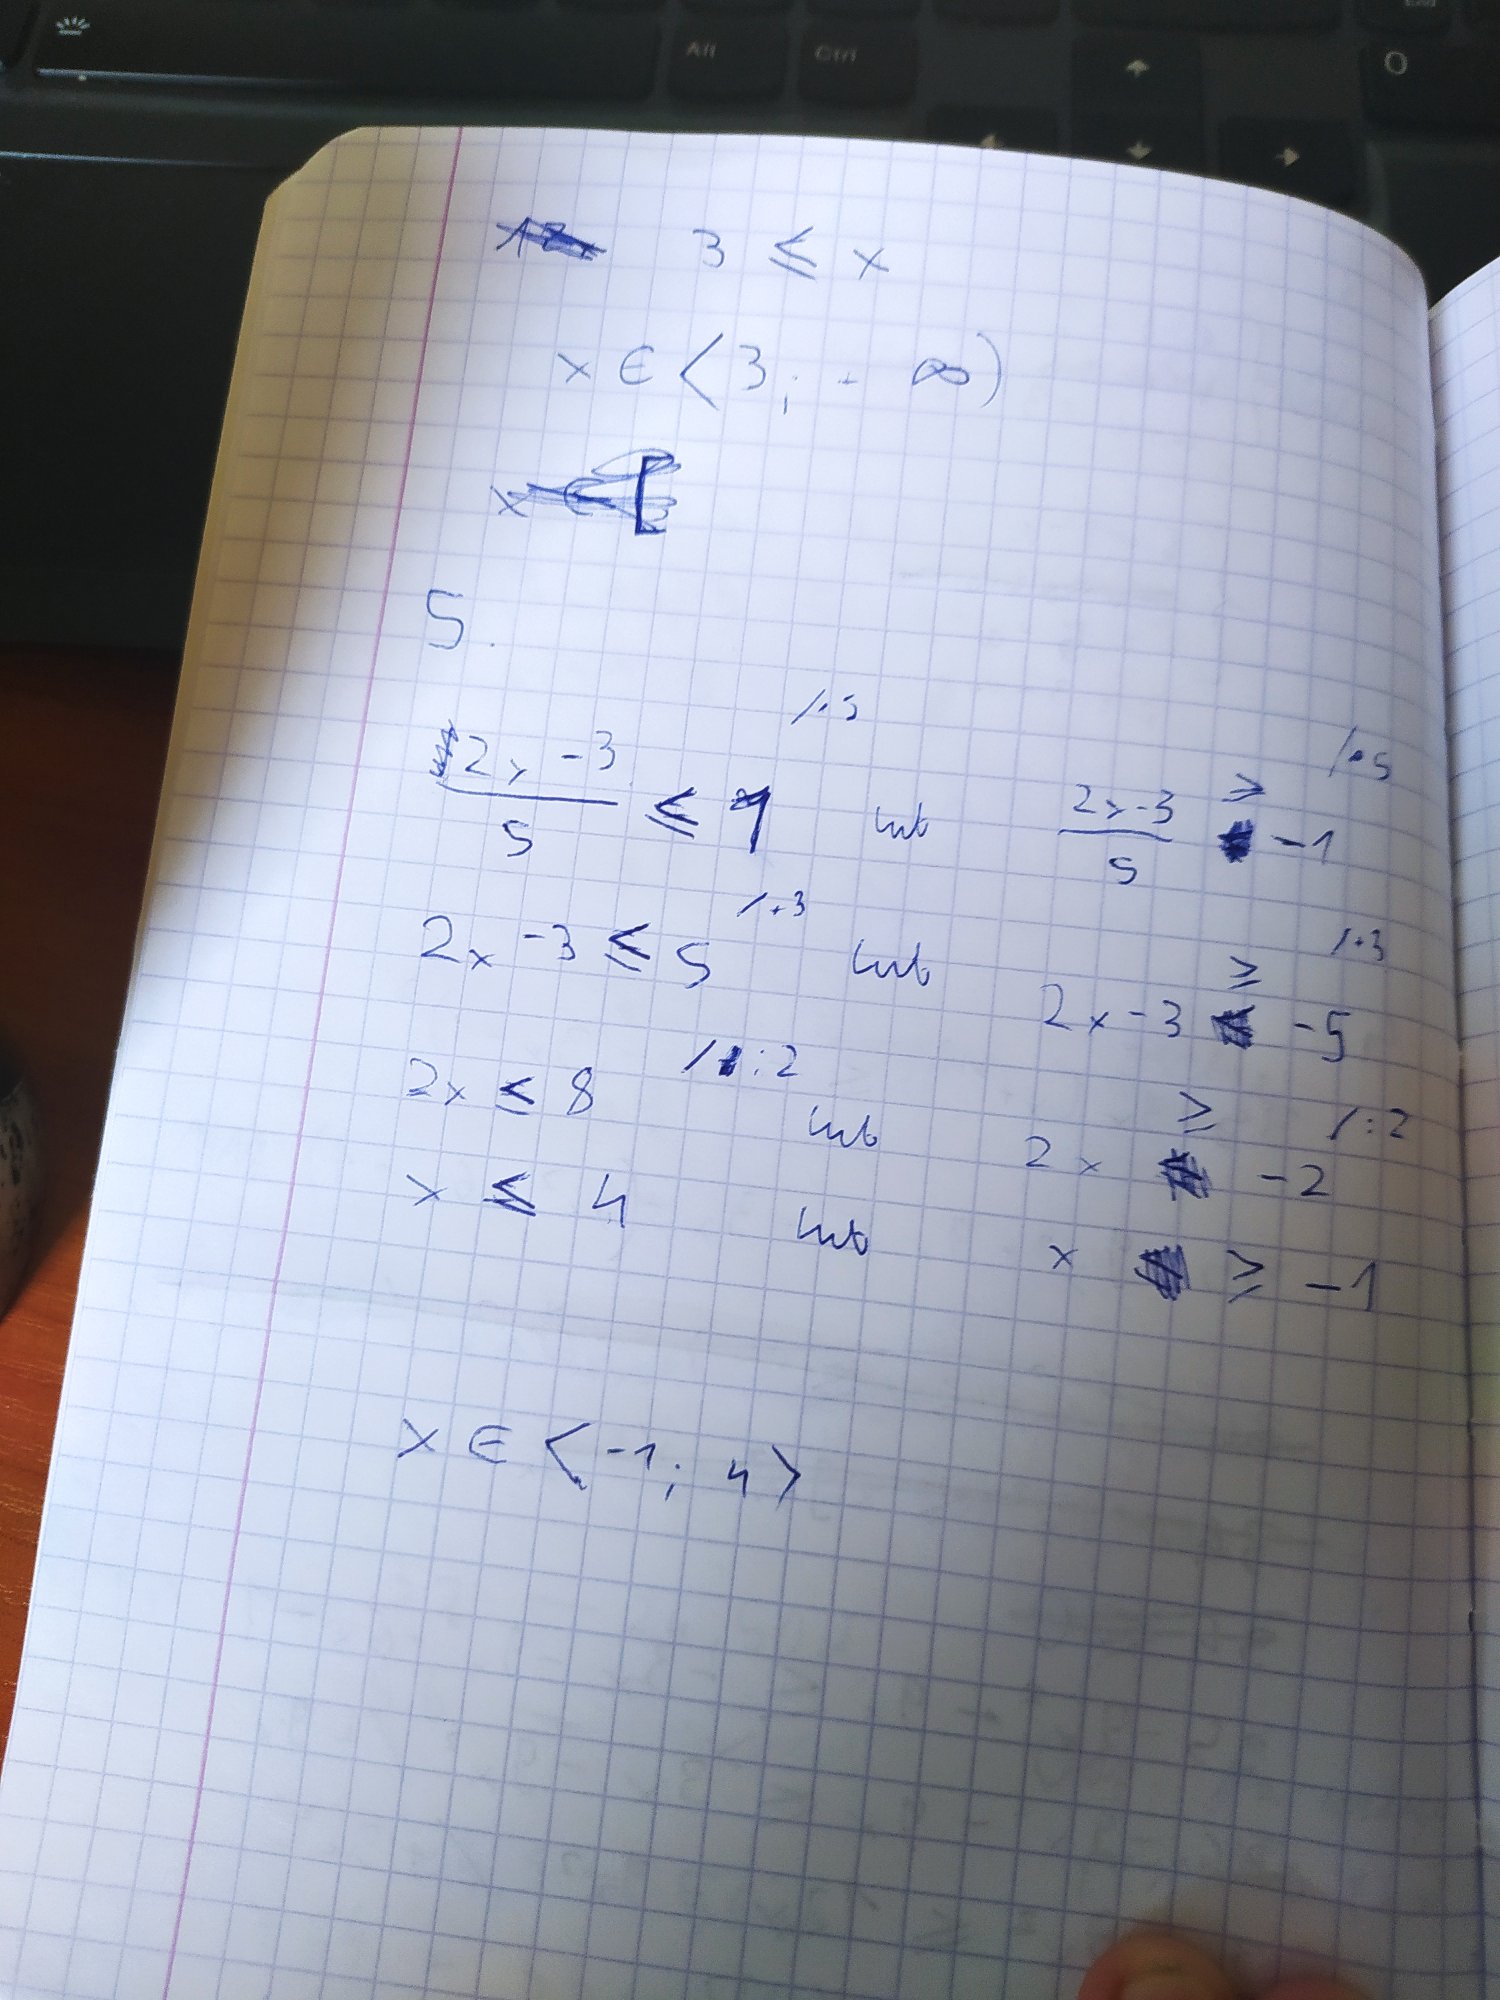 Alt Ctrl End
O
3 ≤ x
x ∈ <3; - ∞)
5.
2x -3 /5 ≤ 1 /·5 lub 2x-3 /5 ≥ -1 /·5
2x -3 ≤ 5 /+3 lub 2x -3 ≥ -5 /+3
2x ≤ 8 /:2 lub 2x ≥ -2 /:2
x ≤ 4 lub x ≥ -1
x ∈ <-1; 4>